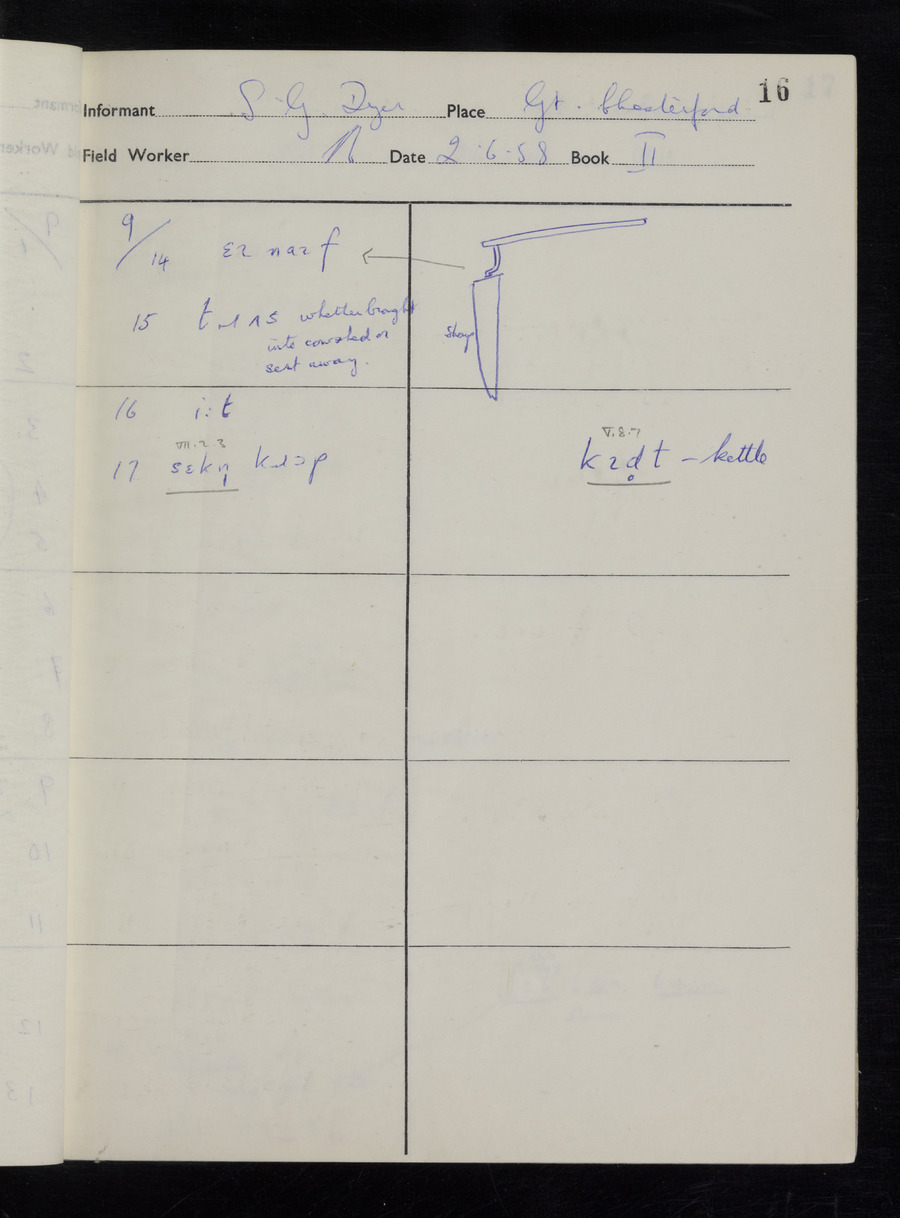 16
Informant S. G. Dyer Place Gt. Chesterford
Field Worker Date 2.6.58 Book II
9/14 naɪf
15 whether brought
into cowshed or
sent away.
Sharp
16 i:t
VII.2.3
17 sɛkn̩
V.8.7
– kettle